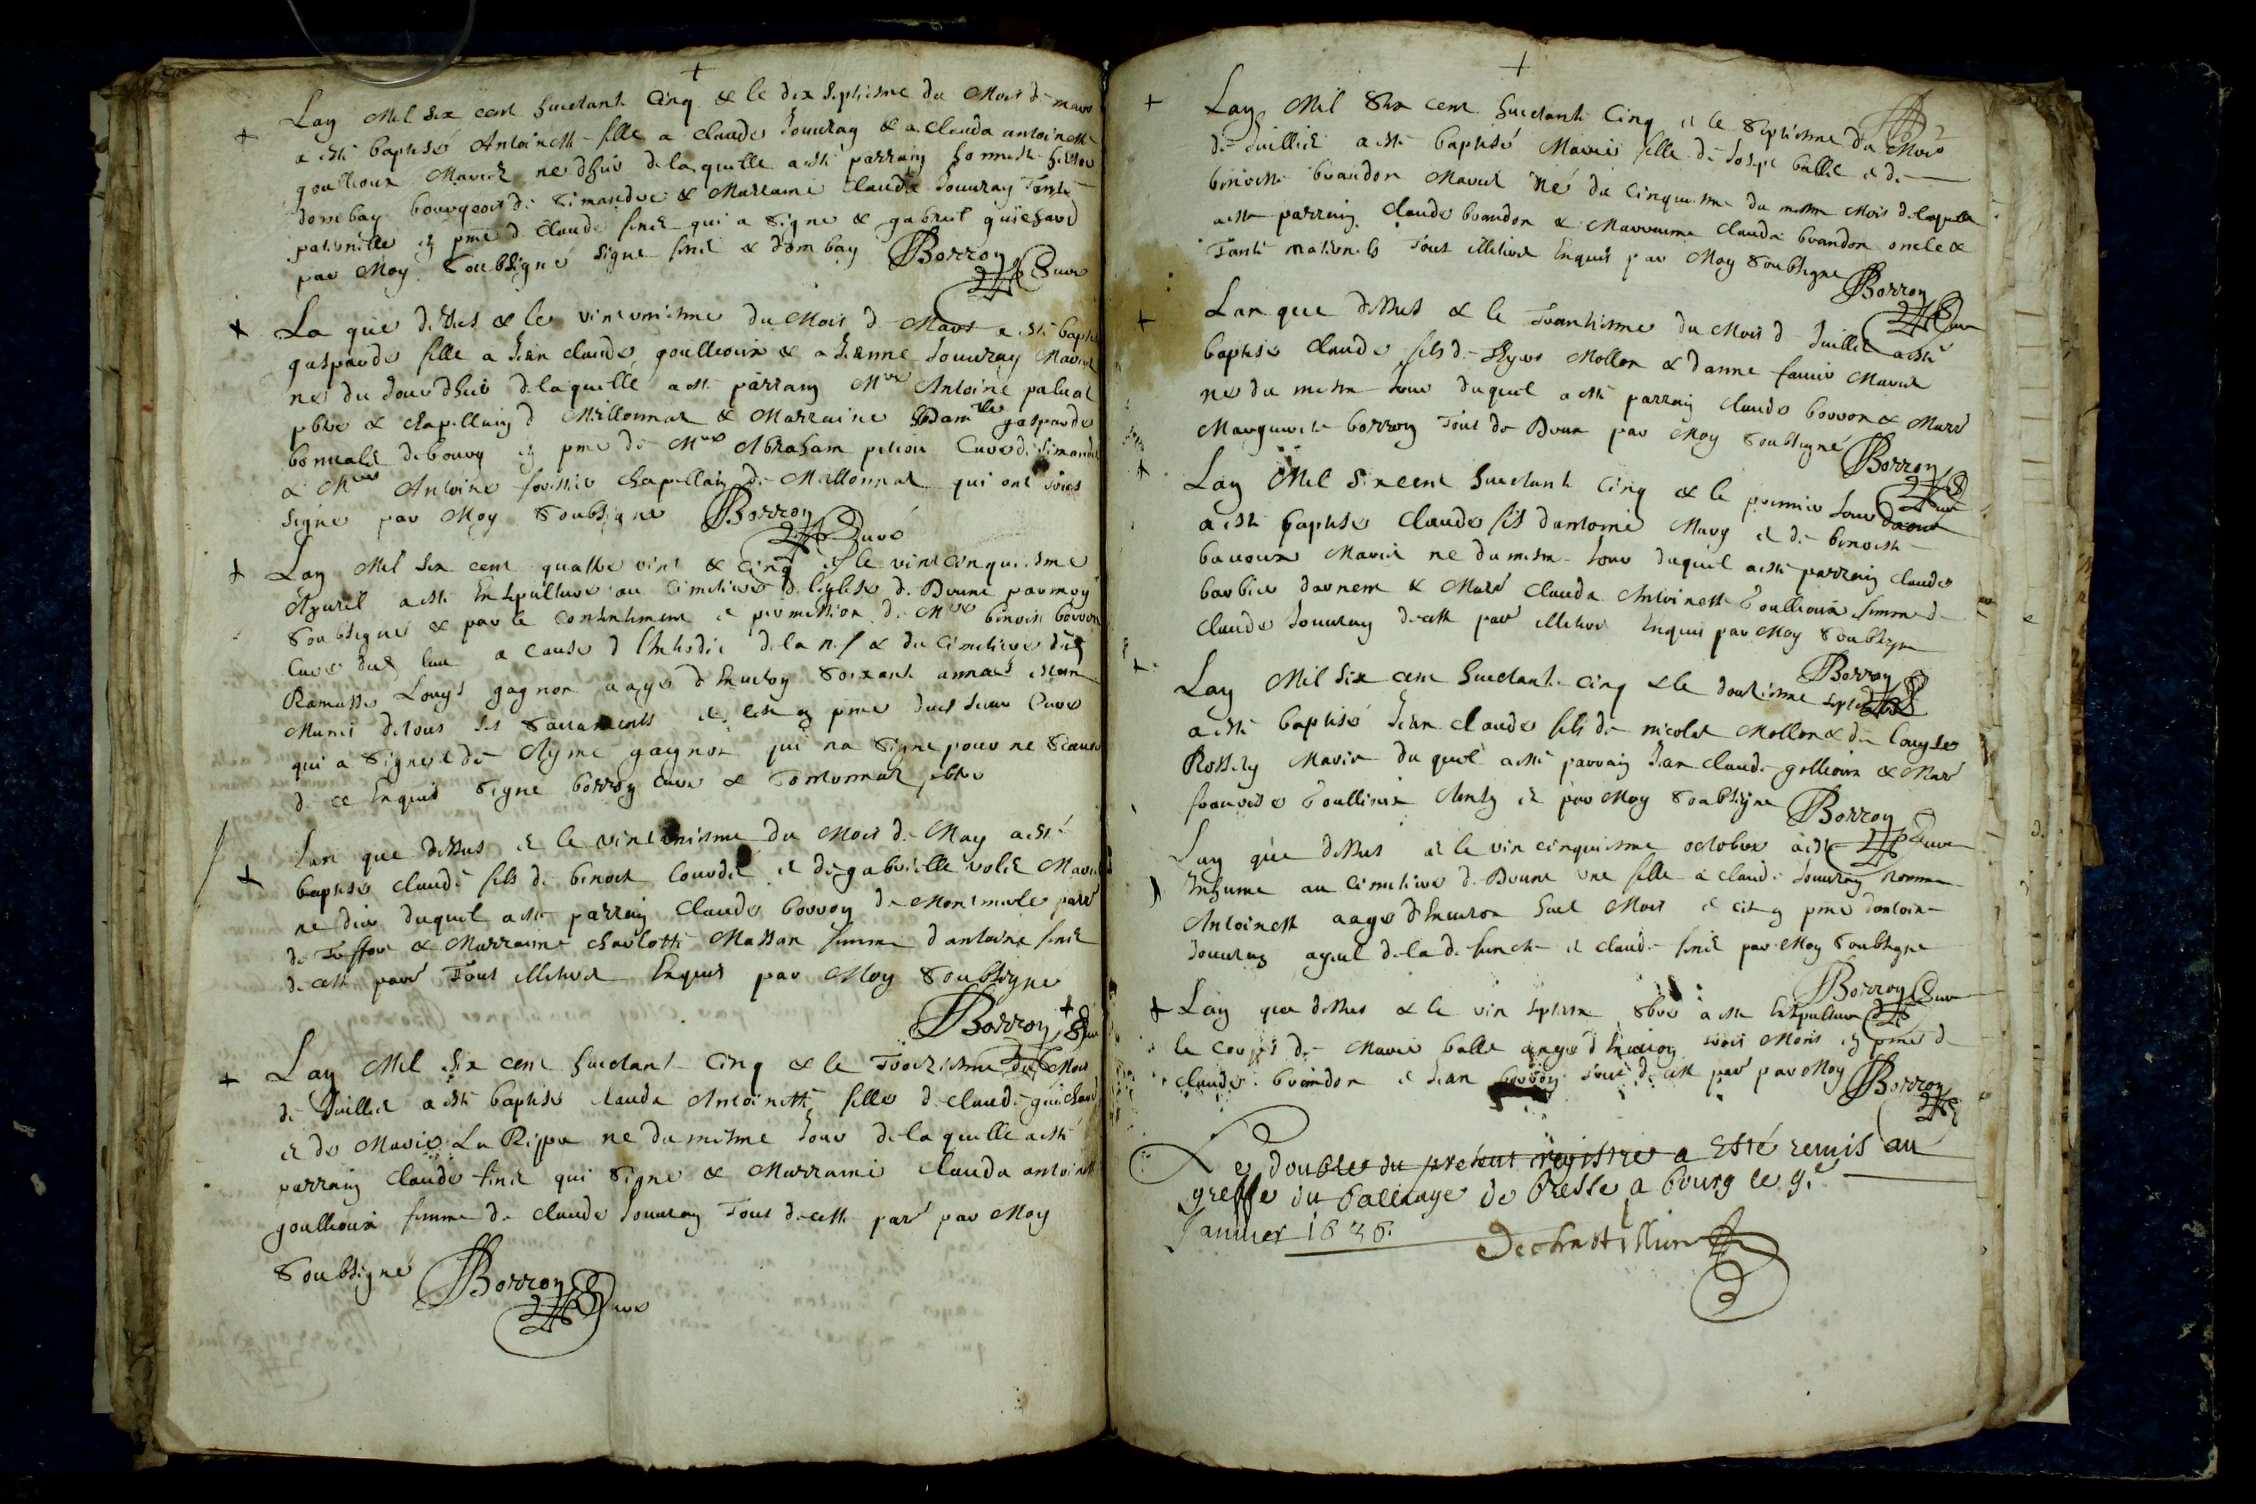 Lan Mil six cent huictante cinq & le dix septiesme du Mois de mars
a esté baptisé Antoinette fille a claude Jouvray & a clauda antoinette
goullioux Mariez née dhuy de laquelle a esté parrain honneste
dombay bourgeois de Simandre & Marraine Claudа Jouvray Tante
paternelle en pnce d Claude finet qui a Signé & gabriel guichard
par Moy Soubsigné signe finet & dombay Borron Curé
La que dessus & le vint uniesme du Mois d Mars a esté baptisé
gasparde fille a Jean claude goullioux & a Jeanne Jouvray Mariez
née du Jour dhuy de laquelle a esté parrain Mre Antoine paluat
pbre & chapellain d Meillonnat & Marraine Damlle gasparde
de bourg en pnce de Mre Abraham Curé de Simandre
& Mre Antoine chapellain de Meillonnat qui ont
signé par Moy Soubsigné Borron Curé
Lan Mil six cent quattre vint & cinq & le vint cinquiesme
Apuril a esté Ensepulturé au Cimetiere de leglise de Drunt par moy
Soubsigné & par le Consentement & permission de Mre benoist borron
Curé dud lieu a cause d linterdit de la nef & du Cimetiere dud
Ramasse Louys gagnon aagé d Environ Soixante années estant
Muni de tous ses Sacrements & en pnce dud sieur Curé
qui a Signé & de Ayme gagnon qui na Signé pour ne Scavoir
d ce Enquis Signé borron Curé & pbre
Lan que dessus & le vint uniesme du Mois de May a esté
baptisé claude fils de benoit & de gabrielle Mariez
né duquel a esté parrain Claude borron de Montmerle parr
de Treffort & Marraine charlotte Massan femme d antoine finet
de cette parr Tous illiteré Enquis par Moy Soubsigné
Borron Curé
Lan Mil six cent huictante cinq & le Troiziesme du Mois
de Juillet a esté baptisé clauda Antoinette fille d claude guichard
& de Marie La Rippe née du mesme Jour de laquelle a esté
parrain Claude finet qui Signé & Marraine Clauda antoinette
goullioux femme de claude Jouvray Tous de cette parr par Moy
Soubsigné Borron Curé
Lan Mil Six cent huictante Cinq & le Septiesme du Mois
de Juillet a esté baptisé Marie fille de Josept balle & de
benoiste brandon Mariez née du Cinquiesme du mesme Mois de laquelle
a esté parrain Claude brandon & Marraine Clauda brandon oncle &
Tante maternels Tous illiteré Enquis par Moy Soubsigné Borron
Curé
Lan que dessus & le Trantiesme du Mois d Juillet a esté
baptisé claude fils de Mollon & danne Mariez
né du mesme Jour duquel a esté parrain claude borron & Marr
Marguerite borron Tous de Drun par Moy Soubsigné Borron
Curé
Lan Mil Six cent huictante cinq & le premier Jour daout
a esté baptisé Claude fils dantoine Mary & de benoiste
bavoux Mariez né du mesme Jour duquel a esté parrain claude
barbier & Marr Clauda Antoinette Goullioux femme de
Claude Jouvray de cette parr illiteré Enquis par Moy Soubsigné
Borron
Lan Mil Six cent huictante cinq & le douziesme septembre
a esté baptisé Jean claude fils de nicolas Mollon & de Louyse
Mariez duquel a esté parrain Jean claude gollioux & Marr
francoise Goullioux & par Moy Soubsigné Borron
Curé
Lan que dessus & le vin cinquiesme octobre a esté
Inhumé au Cimetiere d Drunt une fille a claude Jouvray nommé
Antoinette aagé d Environ huit Mois & en pnce dantoine
Jouvray ayeul de la defuncte & claude finet par Moy Soubsigné
Borron Curé
Lan que dessus & le vin septiesme 8bre a esté Ensepulturé
le corps de Marie balle aagé d Environ trois Mois en pnce d
claude brandon & Jean borron Tous d cette parr par Moy Borron
Le double du present registre a esté remis au
greffe du balliage de bresse a bourg le 9e
Janvier 1686.
Dechastillion